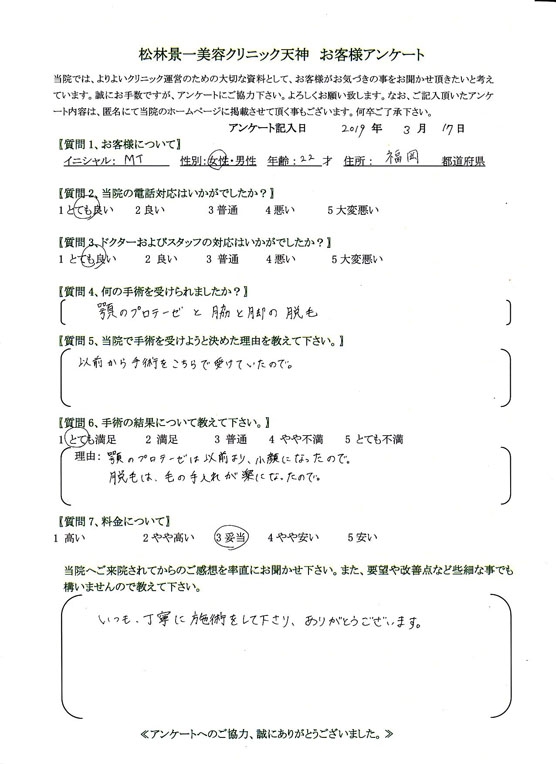 松林景一美容クリニック天神 お客様アンケート
当院では、よりよいクリニック運営のための大切な資料として、お客様がお気づきの事をお聞かせ頂きたいと考え
ています。誠にお手数ですが、アンケートにご協力下さい。よろしくお願い致します。なお、ご記入頂いたアンケ
ート内容は、匿名にて当院のホームページに掲載させて頂く事もございます。何卒ご了承下さい。
アンケート記入日 2019 年 3 月 17 日
【質問1、お客様について】
イニシャル: MT 性別:女性・男性 年齢:22 才 住所: 福岡 都道府県
【質問2、当院の電話対応はいかがでしたか?】
1 とても良い 2 良い 3 普通 4 悪い 5 大変悪い
【質問3、ドクターおよびスタッフの対応はいかがでしたか?】
1 とても良い 2 良い 3 普通 4 悪い 5 大変悪い
【質問4、何の手術を受けられましたか?】
顎のプロテーゼ と 脇と脚の 脱毛
【質問5、当院で手術を受けようと決めた理由を教えて下さい。】
以前から手術をこちらで受けていたので。
【質問6、手術の結果について教えて下さい。】
1 とても満足 2 満足 3 普通 4 やや不満 5 とても不満
理由: 顎のプロテーゼは以前より、小顔になったので。
脱毛は、毛の手入れが楽になったので。
【質問7、料金について】
1 高い 2 やや高い 3 妥当 4 やや安い 5 安い
当院へご来院されてからのご感想を率直にお聞かせ下さい。また、要望や改善点など些細な事でも
構いませんので教えて下さい。
いつも、丁寧に施術をして下さり、ありがとうございます。
≪アンケートへのご協力、誠にありがとうございました。≫